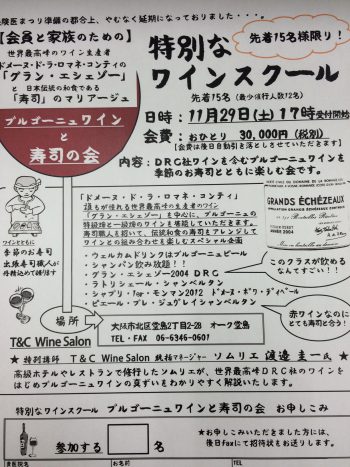 険医まつり準備の都合上、やむなく延期になっておりました・・・。
【会員と家族のための】
世界最高峰のワイン生産者
ドメーヌ・ド・ラ・ロマネ・コンティの
「グラン・エシェゾー」
と 日本伝統の和食である
「寿司」のマリアージュ
ブルゴーニュワイン
と
寿司の会
先着15名様限り!
特別な
ワインスクール
先着15名(最少催行人数12名)
日時:11月29日(土)17時受付開始
会費:おひとり 30,000円(税別)
【会費は後日自動引き落としさせていただきます】
内容:DRC社ワインを含むブルゴーニュワインを
季節のお寿司とともに楽しむ会です。
ワインとともに
季節のお寿司
出張寿司職人が
丹精込めて握ります
「ドメーヌ・ド・ラ・ロマネ・コンティ」
誰もが憧れる世界最高峰の生産者のワイン
「グラン・エシェゾー」を中心に、ブルゴーニュの
特級畑と一級畑のワインを堪能していただきます。
寿司職人を招いて、伝統和食の寿司とブレンドして
ワインとの組み合わせも楽しむスペシャル企画
・ウェルカムドリンクはブルゴーニュビール
・シャンパン飲み放題!!
・グラン・エシェゾー2004 DRC
・ラトリシェール・シャンベルタン
・シャブリ 1er・モンマン2012 ドメーヌ・ボワ・ディベール
・ピエール・ブレ・ジュヴレイシャンベルタン
GRANDS ÉCHÉZEAUX
APPELLATION GRANDS-ÉCHÉZEAUX CONTRÔLÉE
このクラスが飲める
なんてすごい!!
赤ワインなのに
とても寿司と合う!
場所
T&C Wine Salon
大阪市北区堂島2丁目2-28 オーク堂島
TEL・FAX 06-6346-0601
★ 特別講師 T&C Wine Salon 統括マネージャー ソムリエ 渡邉 圭一氏 ★
高級ホテルやレストランで修行したソムリエが、世界最高峰DRC社のワインを
はじめブルゴーニュワインの真ずいをわかりやすく解説いたします。
特別なワインスクール ブルゴーニュワインと寿司の会 お申しこみ
参加する
名
★お申しこみいただきました方には、
後日Faxにて招待状をお送りします。
貴医院名
お名前